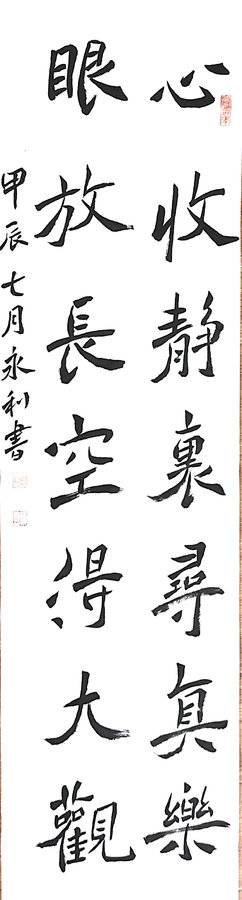 心收静裏尋真樂
眼放長空得大觀
甲辰七月永利書